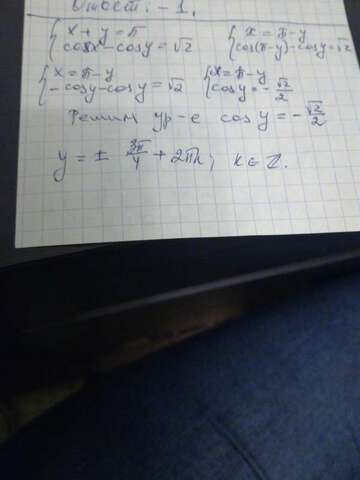 Ответ: - 1.
{ x + y = π { x = π - y
cosx - cosy = √2 cos(π-y) - cosy = √2
{ x = π - y { x = π - y
- cosy - cosy = √2 cosy = - √2/2
Решим ур-е cos y = - √2/2
y = ± 3π/4 + 2πk; k ∈ Z.